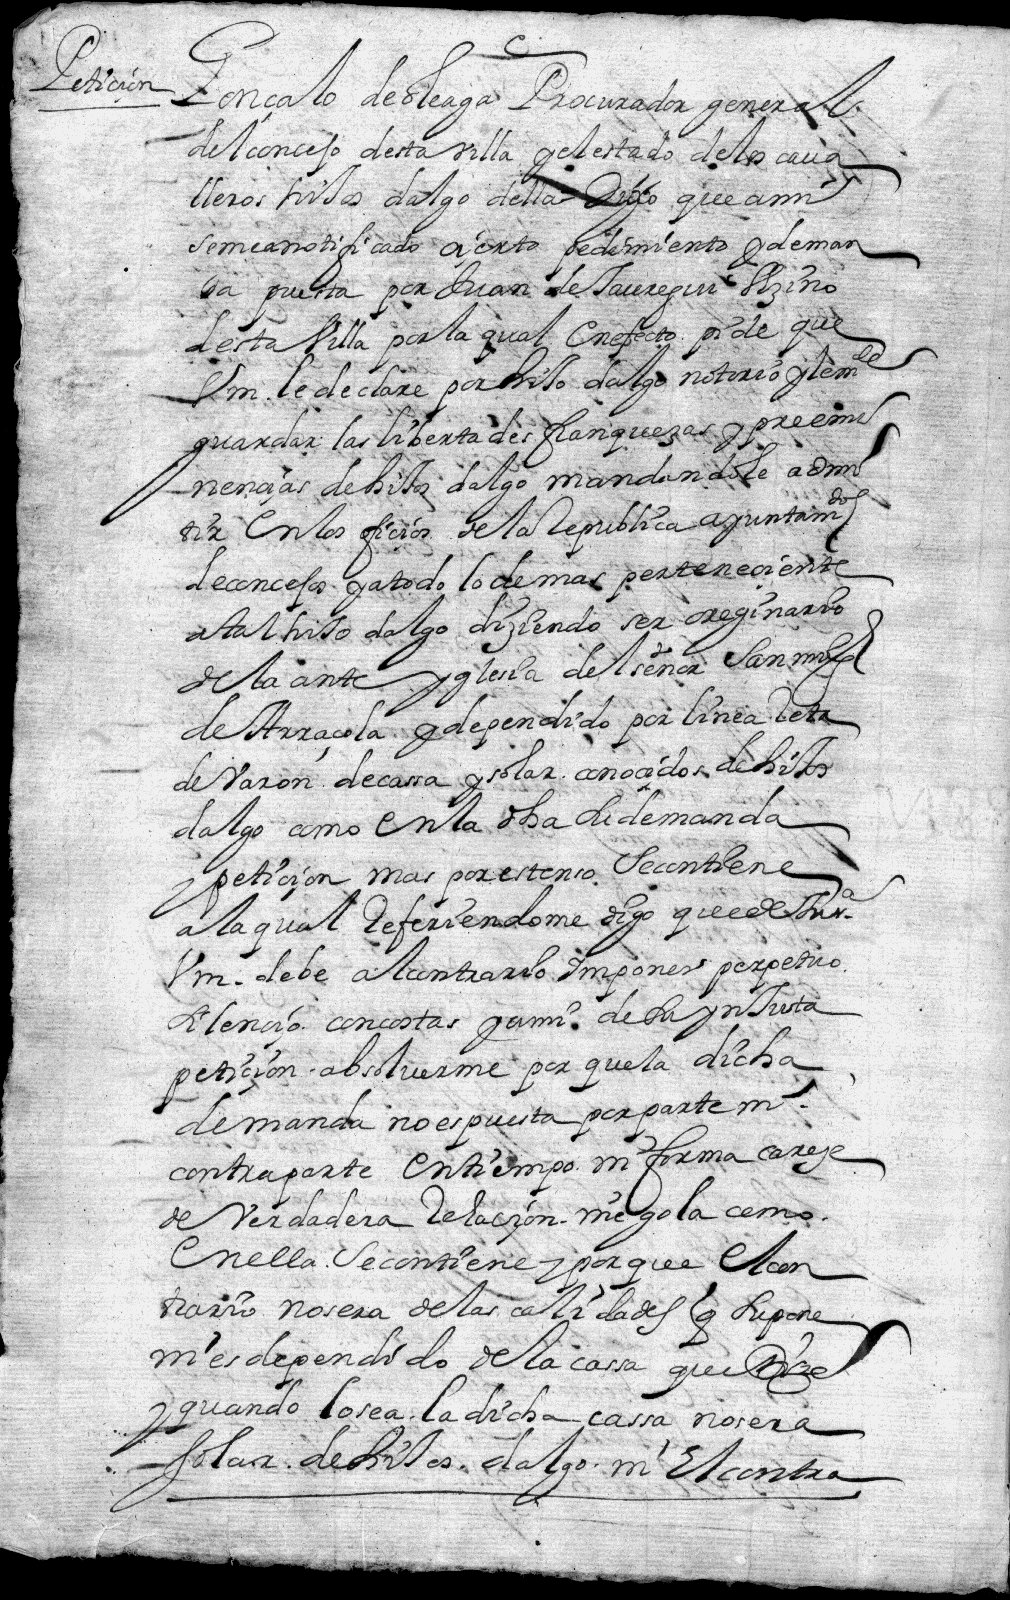 Petición
Gonçalo de oleaga Procurador general
del concejo desta villa y el estado de los caua
lleros hijos dalgo della Digo que a mi
se me a notificado cierto pedimiento y deman
da puesta por Juan de Jauregui Vezino
desta Villa por la qual En efecto pide que
Vm. le declare por hijo dalgo notorio y le mde
guardar las libertades franquezas y preemi
nencias de hijos dalgo mandandole admi
tir En los oficios de la Republica ayuntamdos
de concejos y a todo lo demas perteneciente
a tal hijo dalgo diziendo ser originario
de la ante yglesia del señor San migl
de Arraçola y dependido por linea Reta
de Varon de cassa y solar conocidos de hijos
dalgo como En la dha su demanda
y peticion mas por estenso Se contiene
a la qual Refiriendome digo que de Jusa
Vm. debe al contrario Imponer perpetuo
silencio con costas y a mi de su ynJusta
petición absoluerme por que la dicha
demanda no es puesta por parte ni
contra parte En tiempo ni forma careçe
de Verdadera Relaçion niegola como
En ella Se contiene y porque El con
trario no sera de las calidades q Supone
ni es dependido de la cassa que dize
y quando lo sea la dicha cassa no sera
solar de hijos dalgo ni El contra